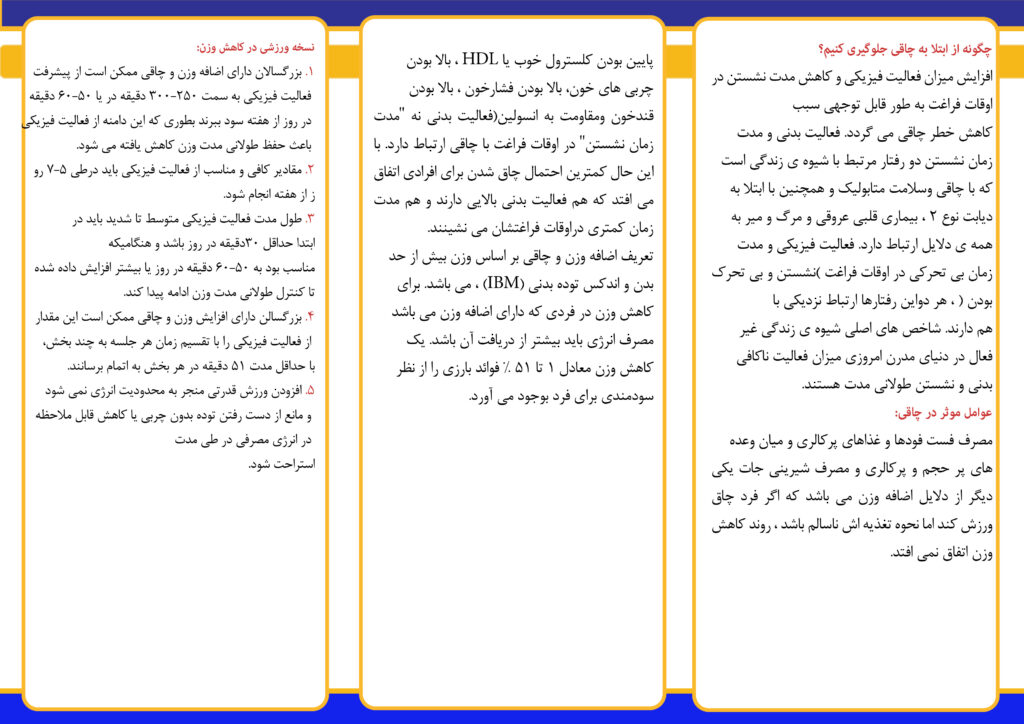 چگونه از ابتلا به چاقی جلوگیری کنیم؟
افزایش میزان فعالیت فیزیکی و کاهش مدت نشستن در
اوقات فراغت به طور قابل توجهی سبب
کاهش خطر چاقی می گردد. فعالیت بدنی و مدت
زمان نشستن دو رفتار مرتبط با شیوه ی زندگی است
که با چاقی وسلامت متابولیک و همچنین با ابتلا به
دیابت نوع ۲ ، بیماری قلبی عروقی و مرگ و میر به
همه ی دلایل ارتباط دارد. فعالیت فیزیکی و مدت
زمان بی تحرکی در اوقات فراغت )نشستن و بی تحرک
بودن ( ، هر دواین رفتارها ارتباط نزدیکی با
هم دارند. شاخص های اصلی شیوه ی زندگی غیر
فعال در دنیای مدرن امروزی میزان فعالیت ناکافی
بدنی و نشستن طولانی مدت هستند.
عوامل موثر در چاقی:
مصرف فست فودها و غذاهای پرکالری و میان وعده
های پر حجم و پرکالری و مصرف شیرینی جات یکی
دیگر از دلایل اضافه وزن می باشد که اگر فرد چاق
ورزش کند اما نحوه تغذیه اش ناسالم باشد ، روند کاهش
وزن اتفاق نمی افتد.
پایین بودن کلسترول خوب یا HDL ، بالا بودن
چربی های خون، بالا بودن فشارخون ، بالا بودن
قندخون ومقاومت به انسولین(فعالیت بدنی نه "مدت
زمان نشستن" در اوقات فراغت با چاقی ارتباط دارد. با
این حال کمترین احتمال چاق شدن برای افرادی اتفاق
می افتد که هم فعالیت بدنی بالایی دارند و هم مدت
زمان کمتری دراوقات فراغتشان می نشینند.
تعریف اضافه وزن و چاقی بر اساس وزن بیش از حد
بدن و اندکس توده بدنی (IBM) ، می باشد. برای
کاهش وزن در فردی که دارای اضافه وزن می باشد
مصرف انرژی باید بیشتر از دریافت آن باشد. یک
کاهش وزن معادل ۱ تا ۵۱ ٪ فوائد بارزی را از نظر
سودمندی برای فرد بوجود می آورد.
نسخه ورزشی در کاهش وزن:
۱. بزرگسالان دارای اضافه وزن و چاقی ممکن است از پیشرفت
فعالیت فیزیکی به سمت ۲۵۰-۳۰۰ دقیقه در یا ۵۰-۶۰ دقیقه
در روز از هفته سود ببرند بطوری که این دامنه از فعالیت فیزیکی
باعث حفظ طولانی مدت وزن کاهش یافته می شود.
۲. مقادیر کافی و مناسب از فعالیت فیزیکی باید درطی ۵-۷ رو
ز از هفته انجام شود.
۳. طول مدت فعالیت فیزیکی متوسط تا شدید باید در
ابتدا حداقل ۳۰دقیقه در روز باشد و هنگامیکه
مناسب بود به ۵۰-۶۰ دقیقه در روز یا بیشتر افزایش داده شده
تا کنترل طولانی مدت وزن ادامه پیدا کند.
۴. بزرگسالن دارای افزایش وزن و چاقی ممکن است این مقدار
از فعالیت فیزیکی را با تقسیم زمان هر جلسه به چند بخش،
با حداقل مدت ۵۱ دقیقه در هر بخش به اتمام برسانند.
۵. افزودن ورزش قدرتی منجر به محدودیت انرژی نمی شود
و مانع از دست رفتن توده بدون چربی یا کاهش قابل ملاحظه
در انرژی مصرفی در طی مدت
استراحت شود.